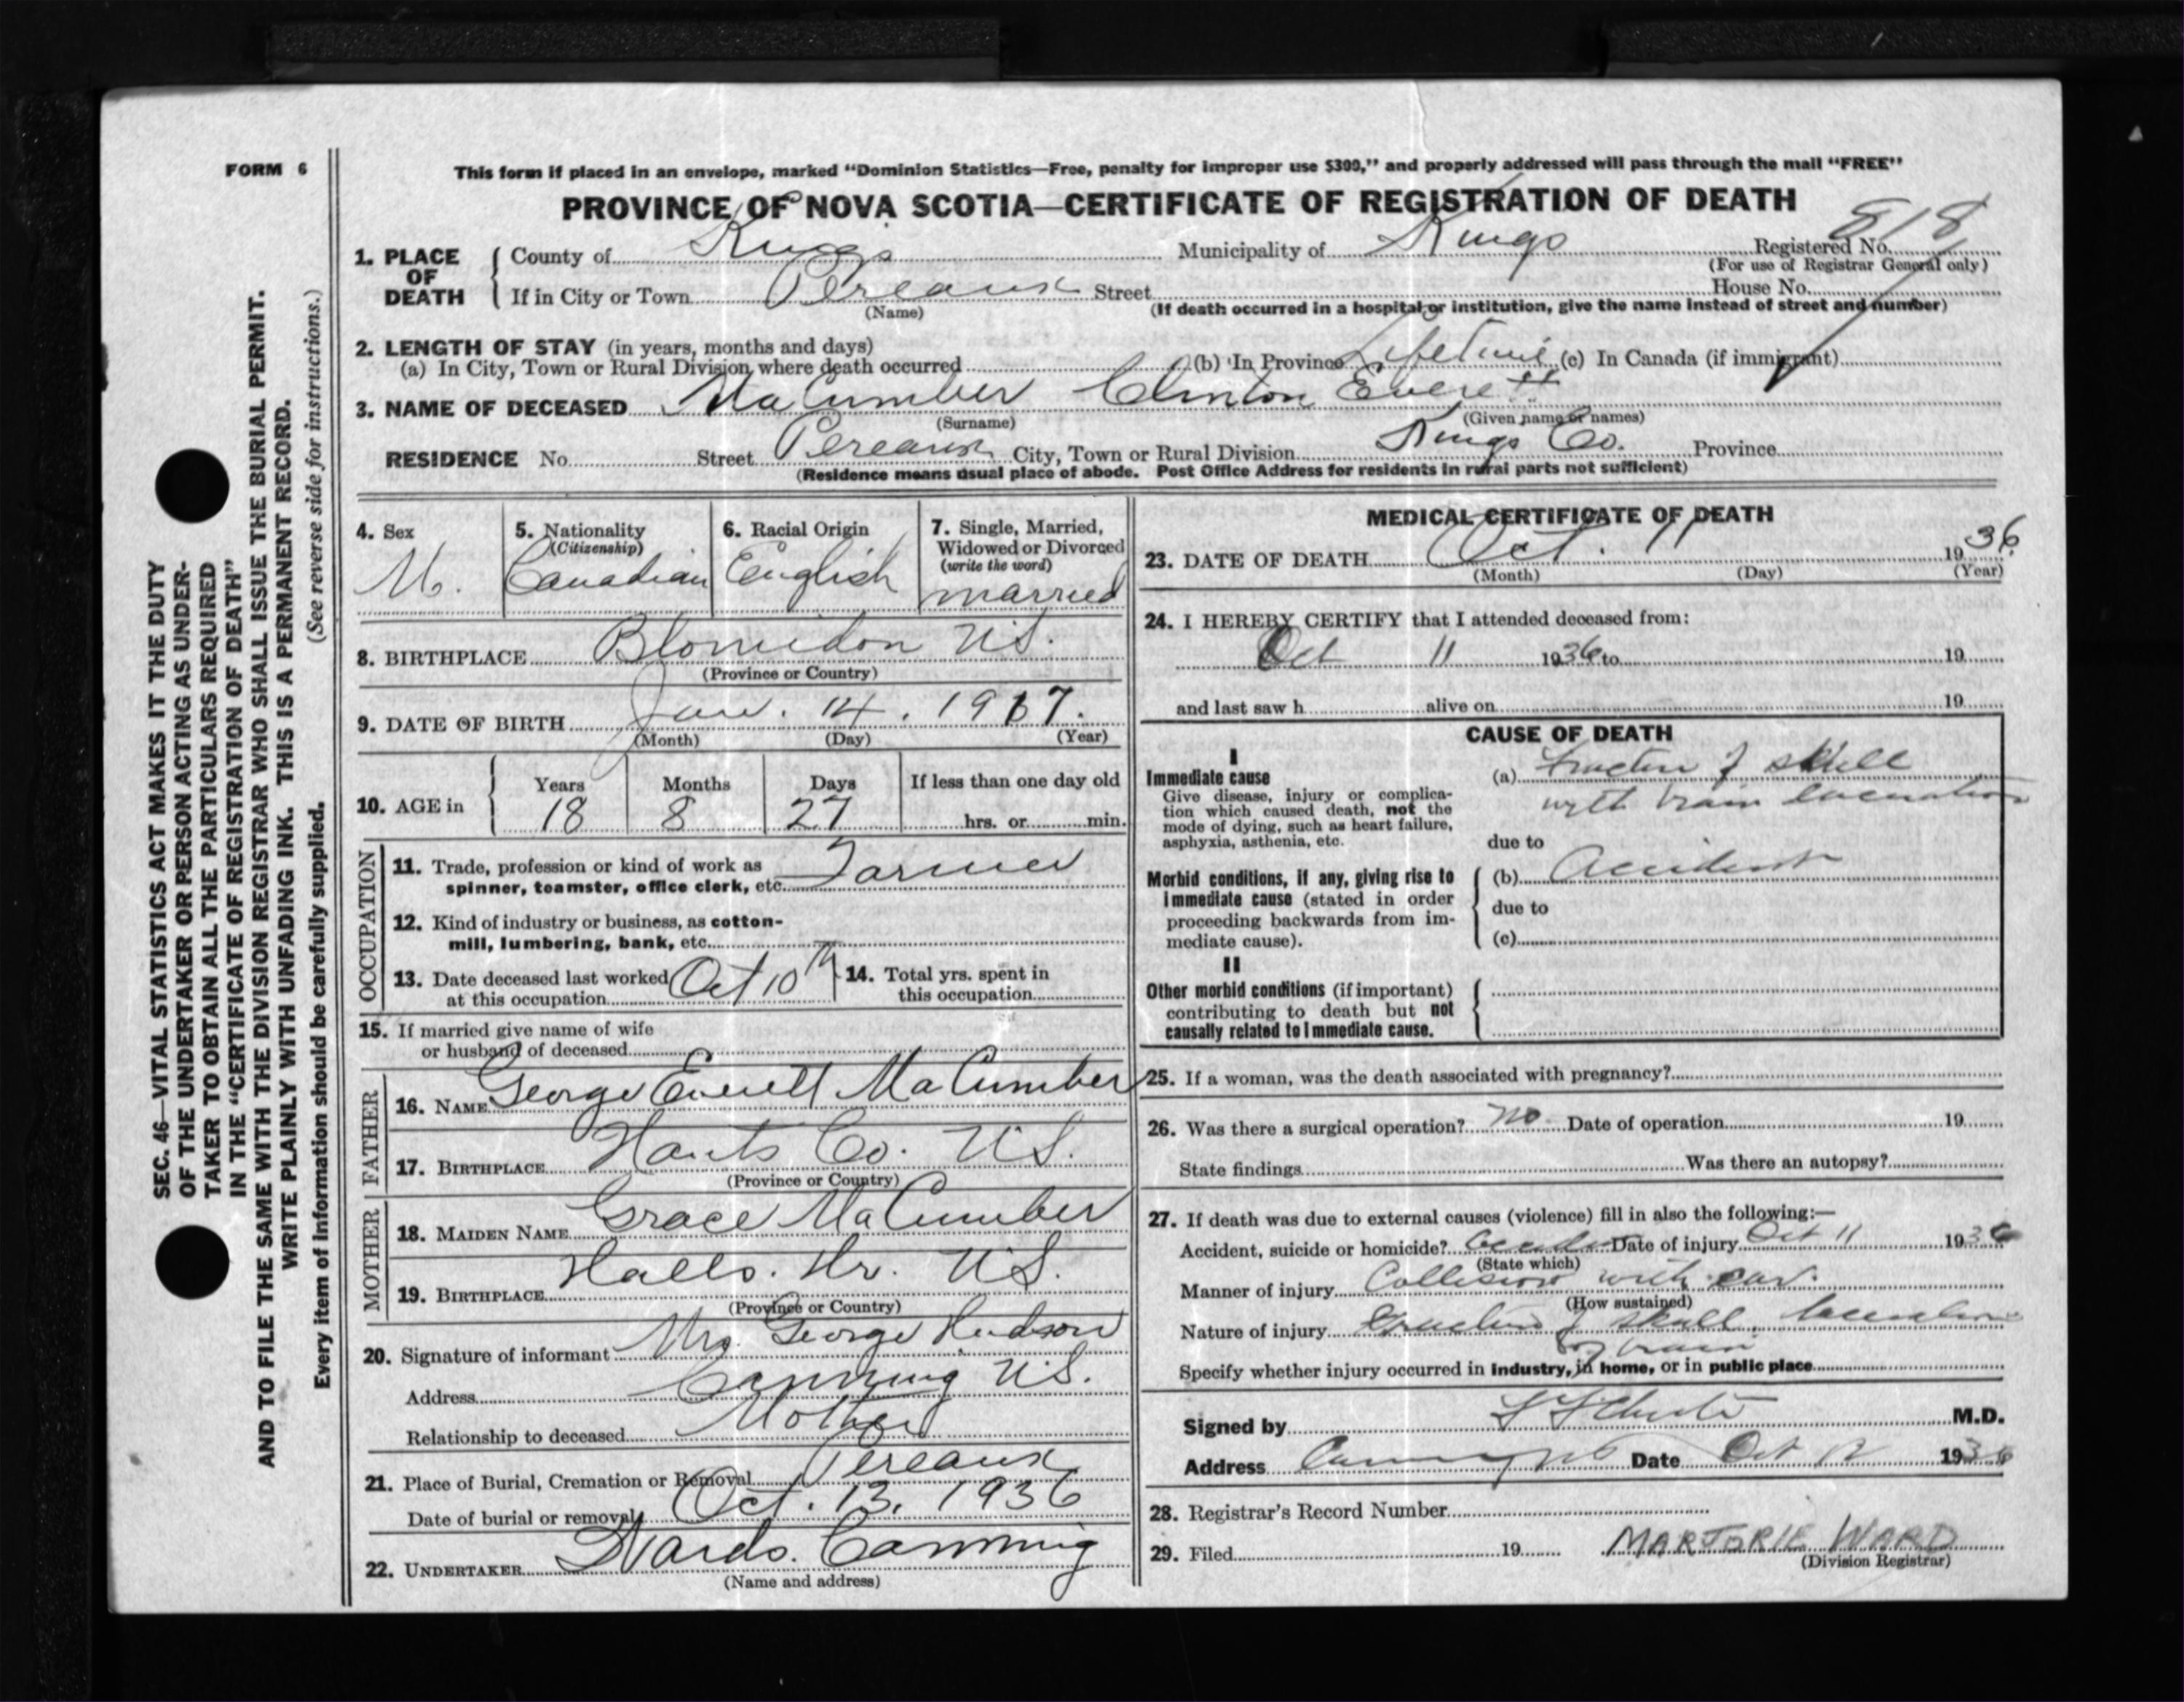 FORM 6
This form if placed in an envelope, marked "Dominion Statistics—Free, penalty for improper use $300," and properly addressed will pass through the mail "FREE"
PROVINCE OF NOVA SCOTIA—CERTIFICATE OF REGISTRATION OF DEATH
1. PLACE OF DEATH { County of Kings Municipality of Kings Registered No. 818
(For use of Registrar General only)
If in City or Town Pereaux Street House No.
(Name) (If death occurred in a hospital or institution, give the name instead of street and number)
2. LENGTH OF STAY (in years, months and days)
(a) In City, Town or Rural Division where death occurred (b) In Province Lifetime (c) In Canada (if immigrant)
3. NAME OF DECEASED MaCumber Clinton Everett
(Surname) (Given name or names)
RESIDENCE No. Street Pereaux City, Town or Rural Division Kings Co. Province
(Residence means usual place of abode. Post Office Address for residents in rural parts not sufficient)
4. Sex M.
5. Nationality (Citizenship) Canadian
6. Racial Origin English
7. Single, Married, Widowed or Divorced (write the word) married
8. BIRTHPLACE Blomidon N.S.
(Province or Country)
9. DATE OF BIRTH Jan. 14. 1917.
(Month) (Day) (Year)
10. AGE in { Years 18 Months 8 Days 27 If less than one day old
hrs. or min.
OCCUPATION
11. Trade, profession or kind of work as spinner, teamster, office clerk, etc. Farmer
12. Kind of industry or business, as cotton-
mill, lumbering, bank, etc.
13. Date deceased last worked at this occupation Oct 10th
14. Total yrs. spent in this occupation
15. If married give name of wife
or husband of deceased
FATHER
16. NAME George Everett MaCumber
17. BIRTHPLACE Hants Co. N.S.
(Province or Country)
MOTHER
18. MAIDEN NAME Grace MaCumber
19. BIRTHPLACE Halls. Hr. N.S.
(Province or Country)
20. Signature of informant Mrs George Hudson
Address Canning N.S.
Relationship to deceased Mother
21. Place of Burial, Cremation or Removal Pereaux
Date of burial or removal Oct. 13. 1936
22. UNDERTAKER Wards. Canning
(Name and address)
MEDICAL CERTIFICATE OF DEATH
23. DATE OF DEATH Oct. 11 1936
(Month) (Day) (Year)
24. I HEREBY CERTIFY that I attended deceased from:
Oct 11 1936 to 19
and last saw h alive on 19
CAUSE OF DEATH
I
Immediate cause
Give disease, injury or complica-
tion which caused death, not the
mode of dying, such as heart failure,
asphyxia, asthenia, etc.
(a) Fracture of skull
with brain laceration
due to
Morbid conditions, if any, giving rise to
immediate cause (stated in order
proceeding backwards from im-
mediate cause).
(b) Accident
due to
(c)
II
Other morbid conditions (if important)
contributing to death but not
causally related to immediate cause.
25. If a woman, was the death associated with pregnancy?
26. Was there a surgical operation? no Date of operation 19
State findings Was there an autopsy?
27. If death was due to external causes (violence) fill in also the following:—
Accident, suicide or homicide? Accident Date of injury Oct 11 1936
(State which)
Manner of injury Collision with car.
(How sustained)
Nature of injury Fracture of skull. laceration
of brain
Specify whether injury occurred in industry, in home, or in public place
Signed by M.D.
Address Canning NS Date Oct 12 1936
28. Registrar's Record Number
29. Filed 19 MARJORIE WARD
(Division Registrar)
SEC. 46—VITAL STATISTICS ACT MAKES IT THE DUTY
OF THE UNDERTAKER OR PERSON ACTING AS UNDER-
TAKER TO OBTAIN ALL THE PARTICULARS REQUIRED
IN THE "CERTIFICATE OF REGISTRATION OF DEATH"
AND TO FILE THE SAME WITH THE DIVISION REGISTRAR WHO SHALL ISSUE THE BURIAL PERMIT.
WRITE PLAINLY WITH UNFADING INK. THIS IS A PERMANENT RECORD.
Every item of information should be carefully supplied. (See reverse side for instructions.)